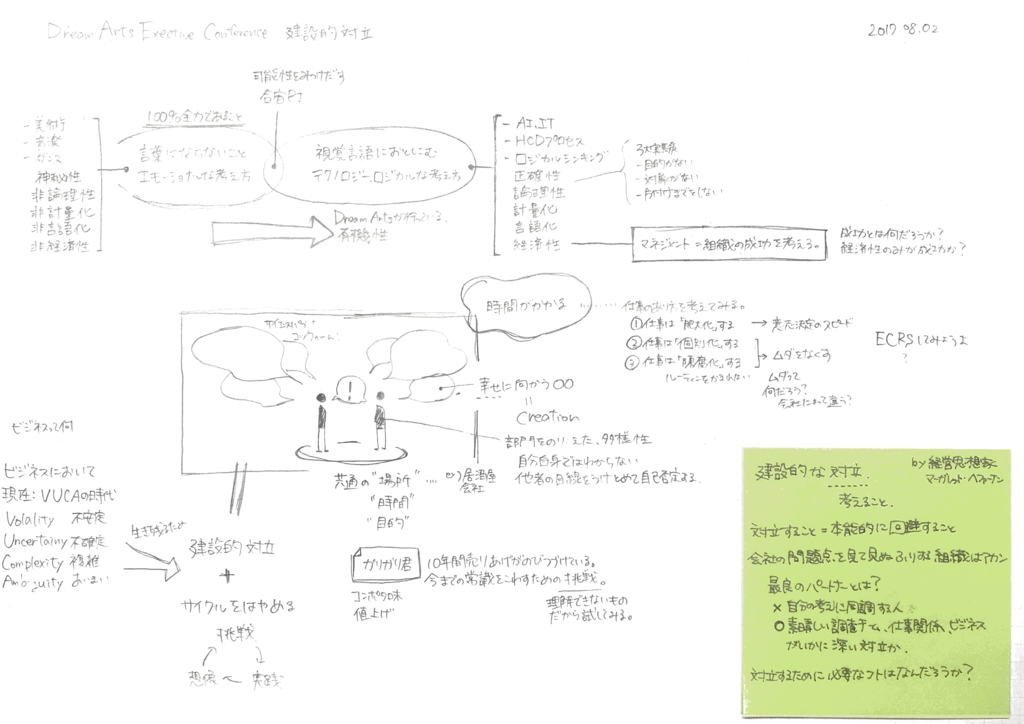 Dream Arts Exective Conference 建設的対立
2017 08.02
可能性をみつけだす
合宿PJ
100%全力であむこと
- 美術
- 音楽
- ダンス
神秘性
非論理性
非計量化
非言語化
非経済性
言葉にならないこと
エモーショナルな考え方
視覚言語におとしこむ
テクノロジー、ロジカルな考え方
Dream Artsが行っている、
有機性
- AI、IT
- HCDプロセス
- ロジカルシンキング
正確性
論理性
計量化
言語化
経済性
3大
- 目的がない
- 対象がない
- 片付けまでをしない
マネジメント=組織の成功を考える。
成功とは何だろうか?
経済性のみが成功か?
時間がかかる
仕事のあり方を考えてみる。
① 仕事は「肥大化」する → 意志決定のスピード
② 仕事は「個別化」する
③ 仕事は「陳腐化」する
→ ムダをなくす
ルーティンをかまれない
ムダって
何だろう?
会社によって違う?
ECRSしてみようよ
?
!
幸せに向かう○○
=
Creation
部門をのりこえた、多様性
自分自身ではわからない
他者の目線をうけとめて自己否定する。
共通の"場所" ... ex)居酒屋
会社
"時間"
"目的"
ビジネスって何
ビジネスにおいて
現在: VUCAの時代
Volality 不安定
Uncertainy 不確定
Complexity 複雑
Ambiguity あいまい
生き残るため
建設的対立
+
サイクルをはやめる
挑戦
実践
想像
ガリガリ君
コンポタ味
値上げ
10年間売りあげがのびつづけている。
今までの常識をこわすための挑戦。
理解できないもの
だから試してみる。
建設的な対立
by 経営思想家
マーガレット・ヘファーナン
考えること。
対立すること=本能的に回避すること
会社の問題点を見て見ぬふりする組織はアカン
最良のパートナーとは?
× 自分の考えに同調する人
○ 素晴しい調査チーム、仕事関係、ビジネス
がいかに深い対立か。
対立するために必要なコトはなんだろうか?